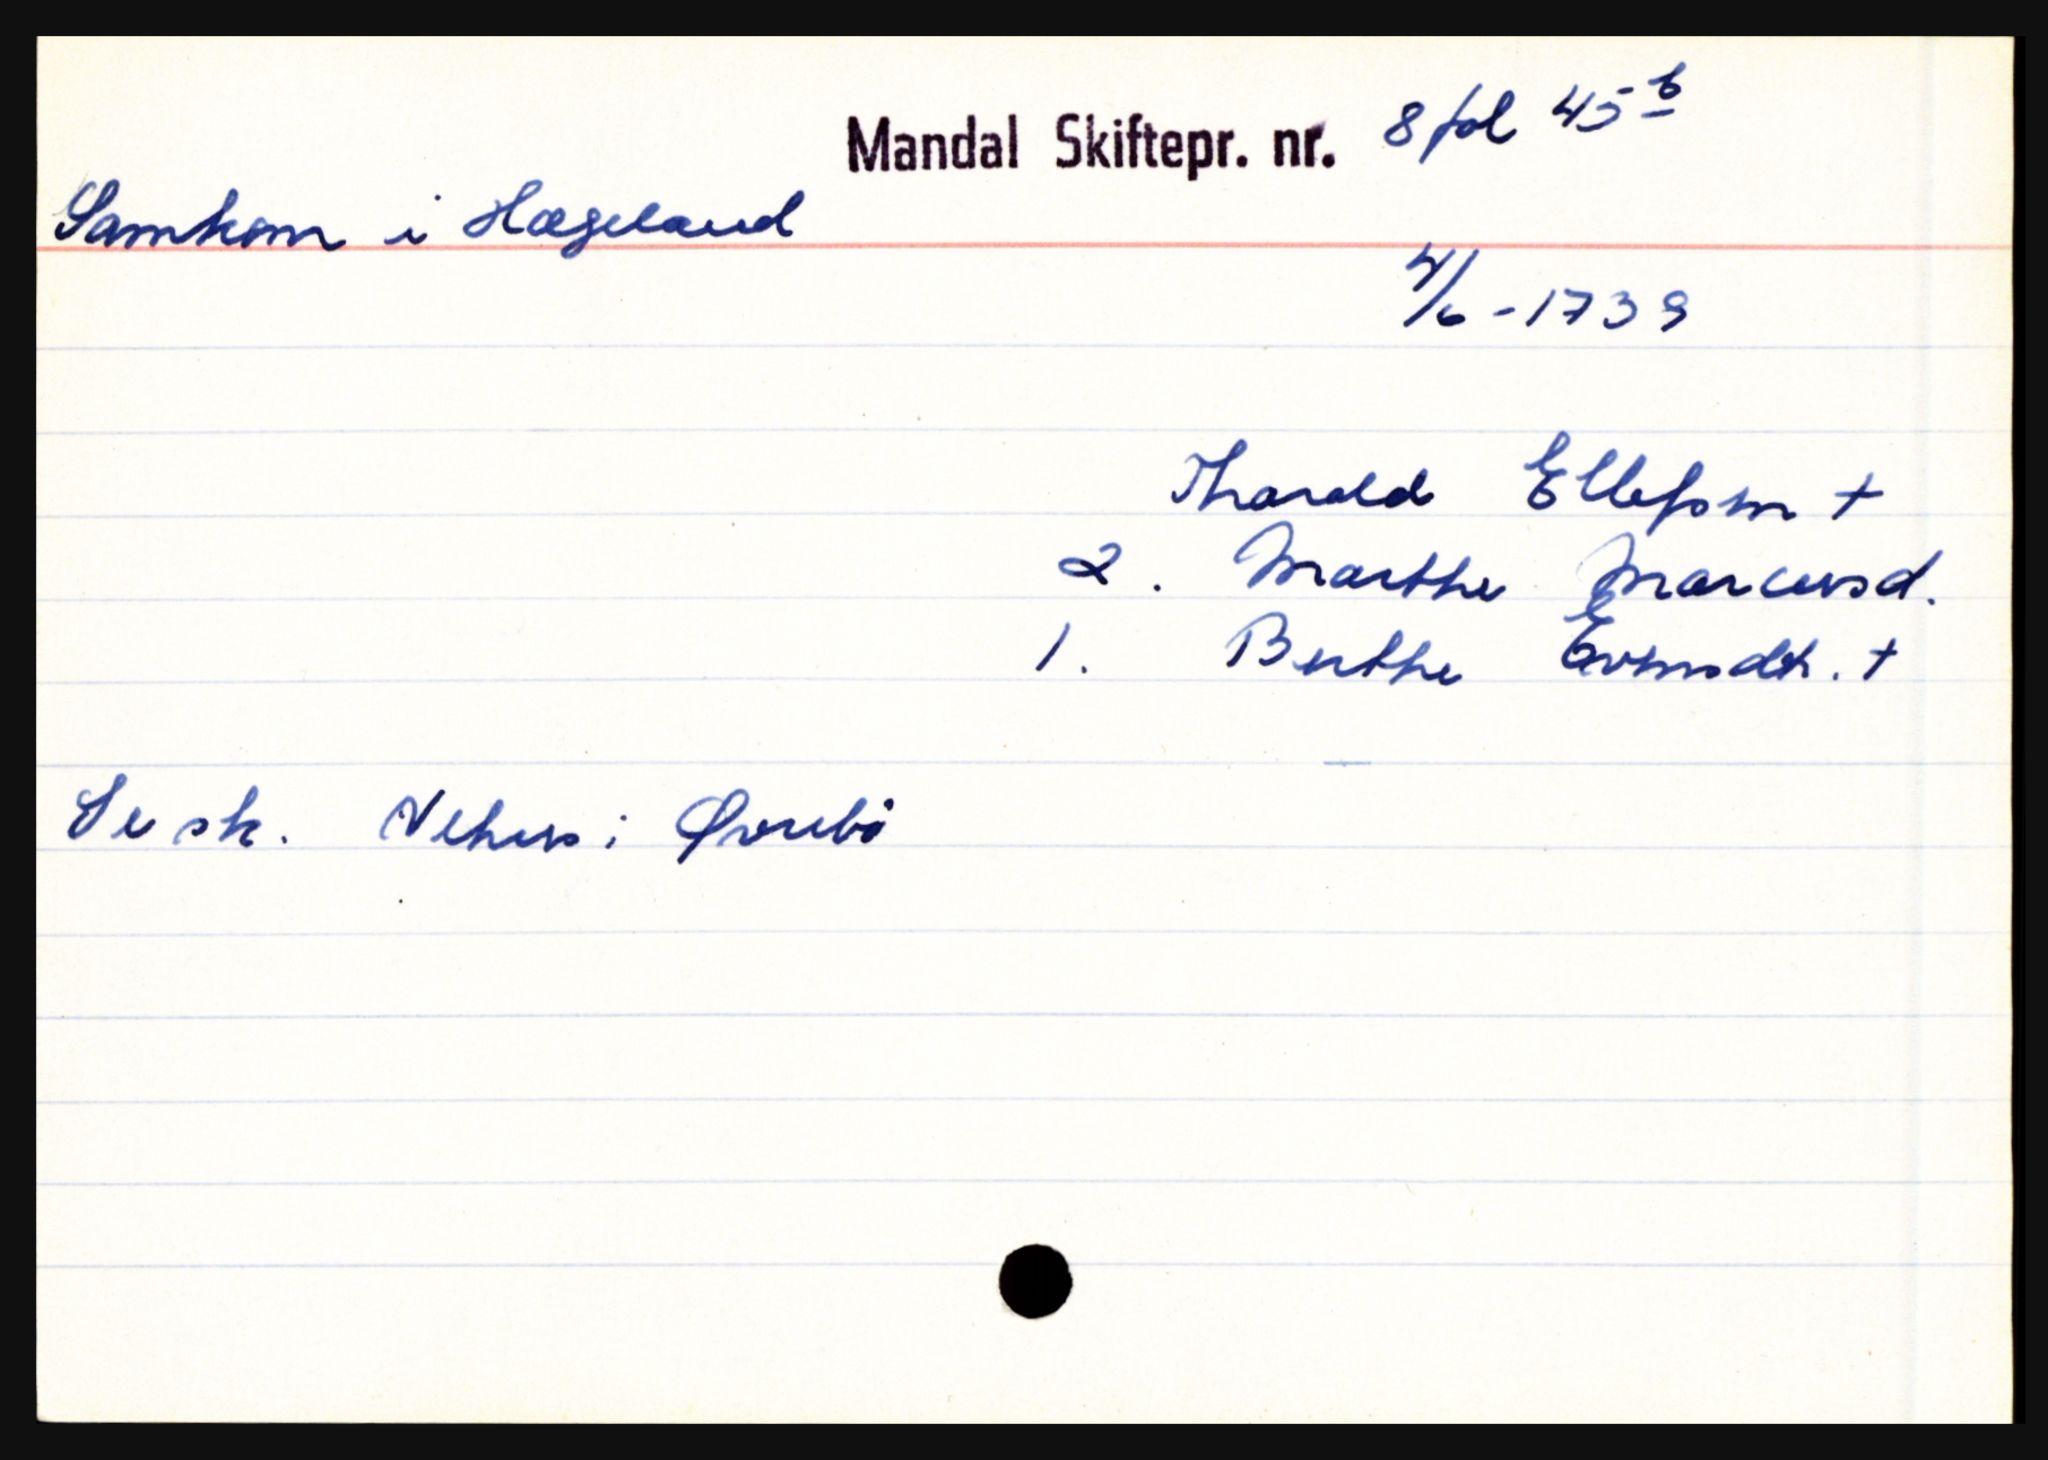 Mandal Skiftepr. nr. 8 fol 45 b
Samkom i Hægeland
4/6 - 1739
Tharald Ellefsen +
2. Marthe Marcusd.
1. Berthe Evensdtr. +
Se sk. i Øvrebö